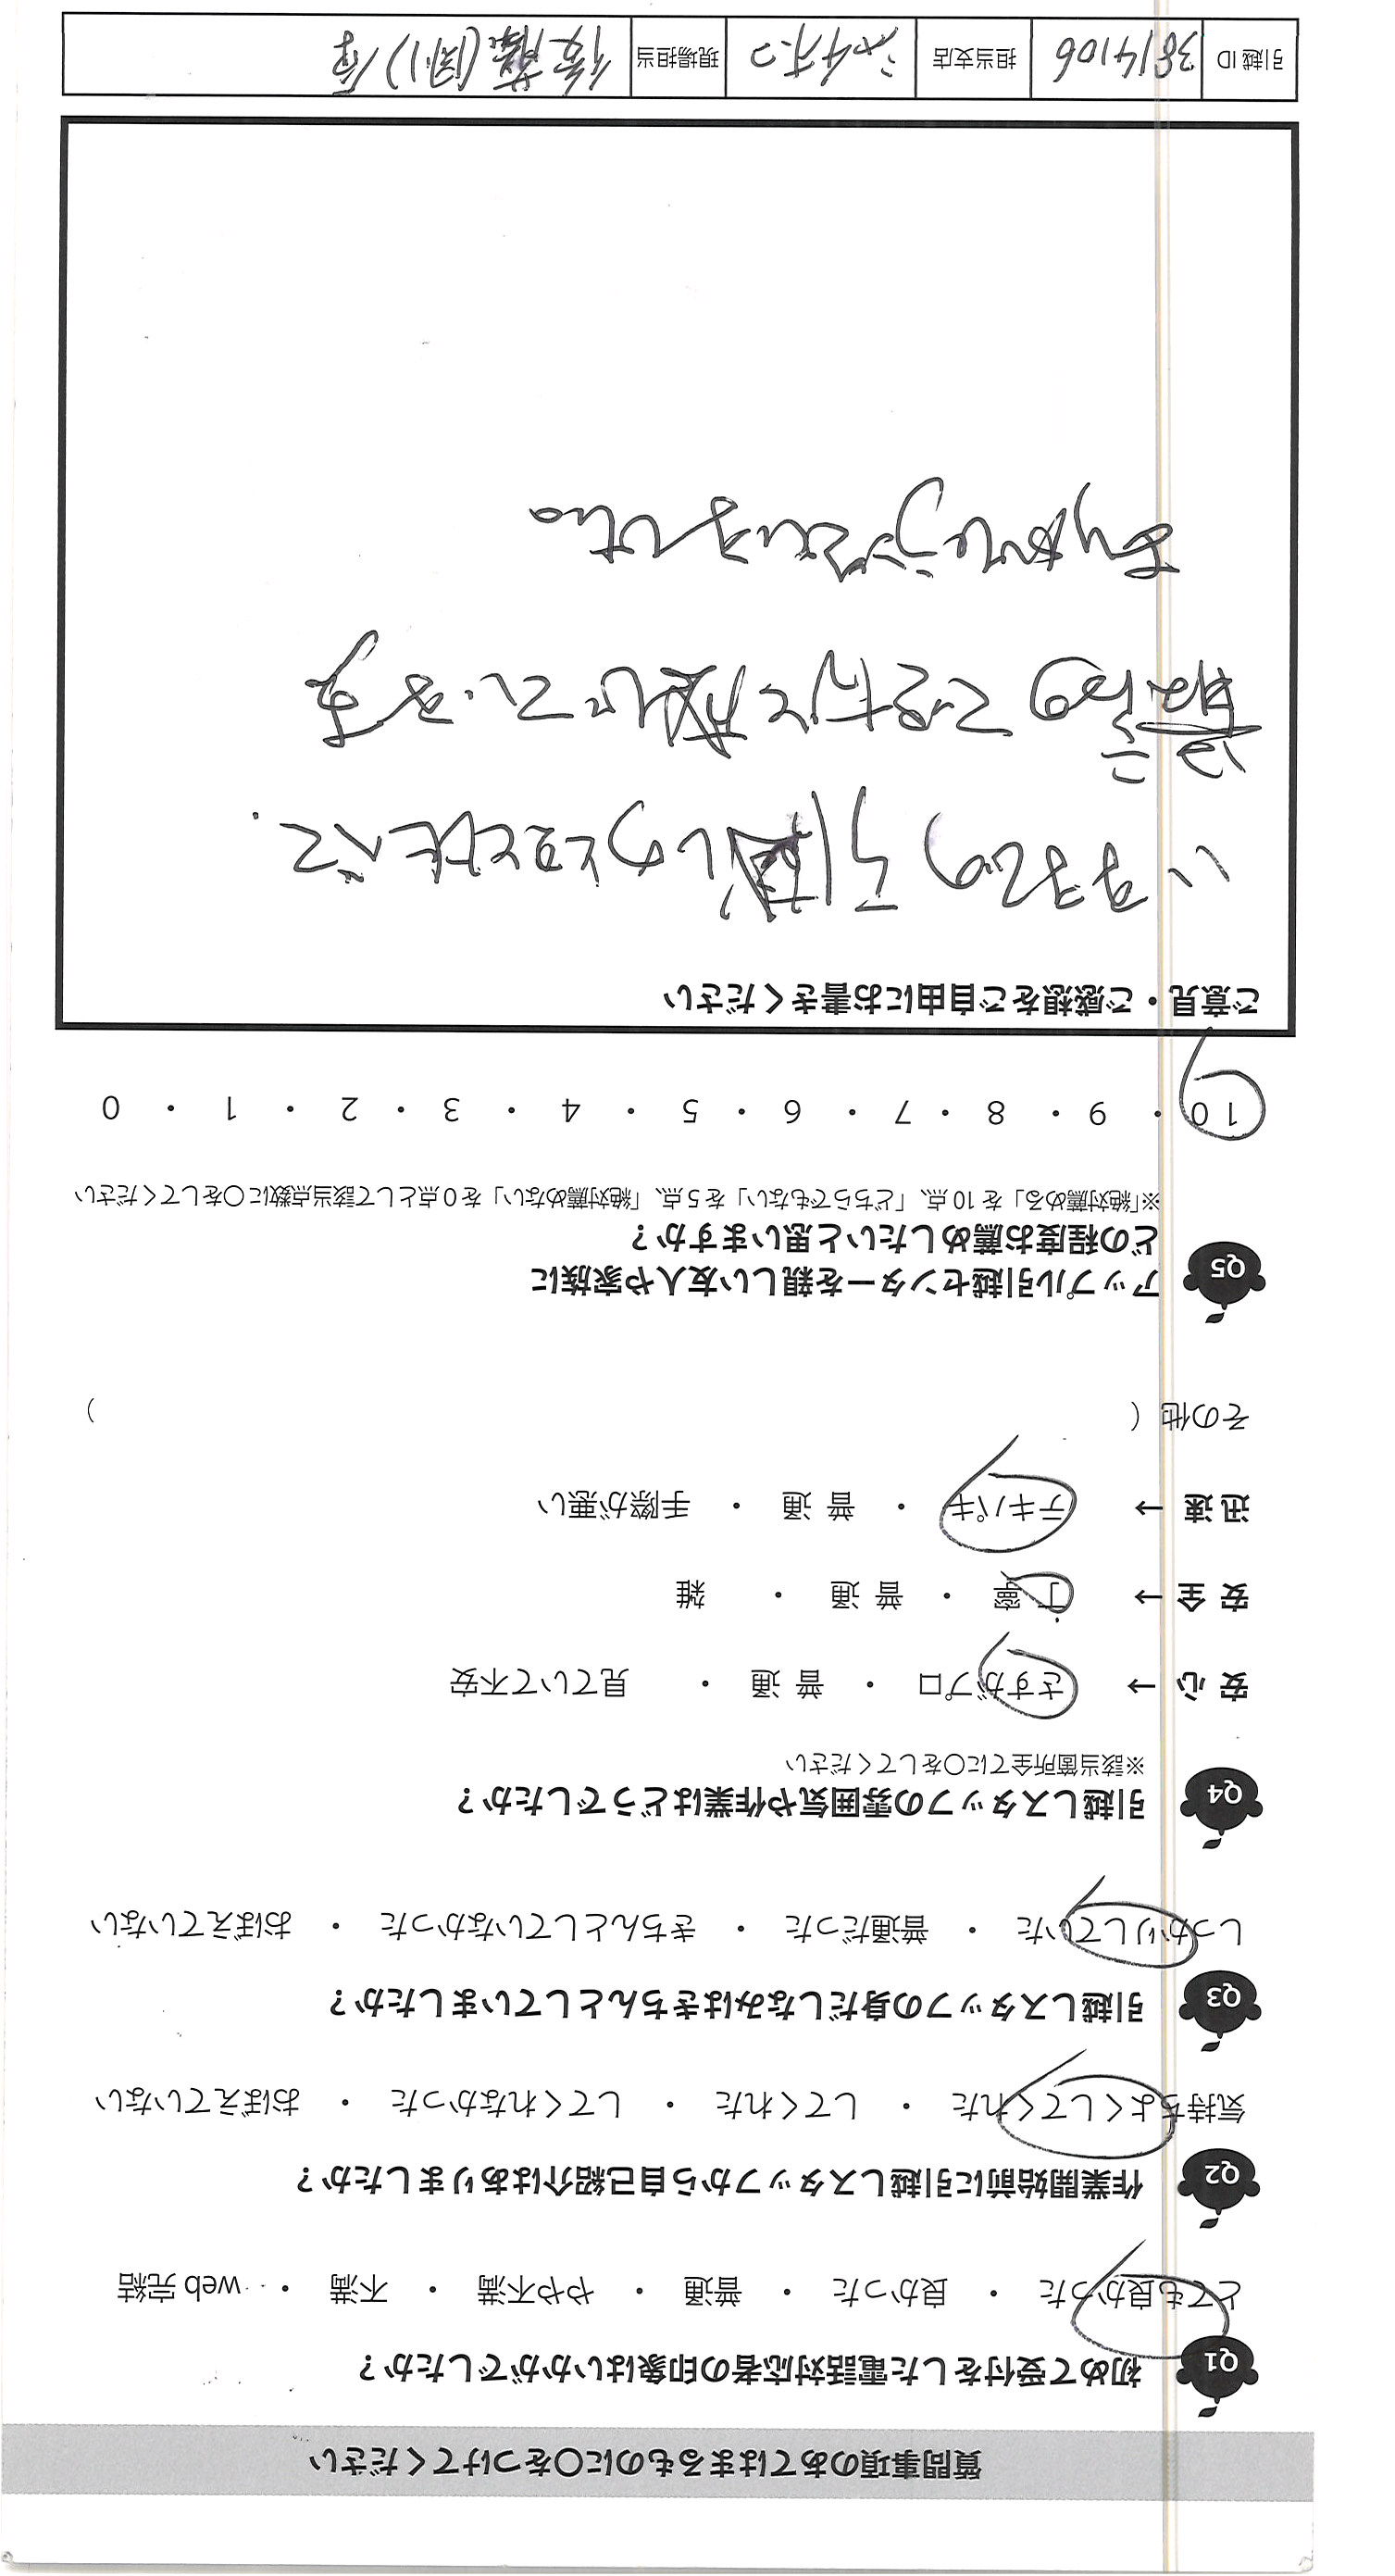 質問事項のあてはまるものに〇をつけてください
Q1 初めて受付をした電話対応者の印象はいかがでしたか？
とても良かった ・ 良かった ・ 普通 ・ やや不満 ・ 不満 ・ web 完結
Q2 作業開始前に引越しスタッフから自己紹介はありましたか？
気持ちよくしてくれた ・ してくれた ・ してくれなかった ・ おぼえていない
Q3 引越しスタッフの身だしなみはきちんとしていましたか？
しっかりしていた ・ 普通だった ・ きちんとしていなかった ・ おぼえていない
Q4 引越しスタッフの雰囲気や作業はどうでしたか？
※該当箇所全てに〇をしてください
安 心 → さすがプロ ・ 普 通 ・ 見ていて不安
安 全 → 丁 寧 ・ 普 通 ・ 雑
迅 速 → テキパキ ・ 普 通 ・ 手際が悪い
その他 ( )
Q5 アップル引越センターを親しい友人や家族に
どの程度お薦めしたいと思いますか？
※「絶対薦める」を 10 点、「どちらでもない」を 5 点、「絶対薦めない」を 0 点として該当点数に〇をしてください
10 ・ 9 ・ 8 ・ 7 ・ 6 ・ 5 ・ 4 ・ 3 ・ 2 ・ 1 ・ 0
ご意見・ご感想をご自由にお書きください
いままでの引越しのとこと比べて
段どりの
で
と感じています
ありがとうございました。
引越 ID 3814106 担当支店 現場担当 後藤(剛)